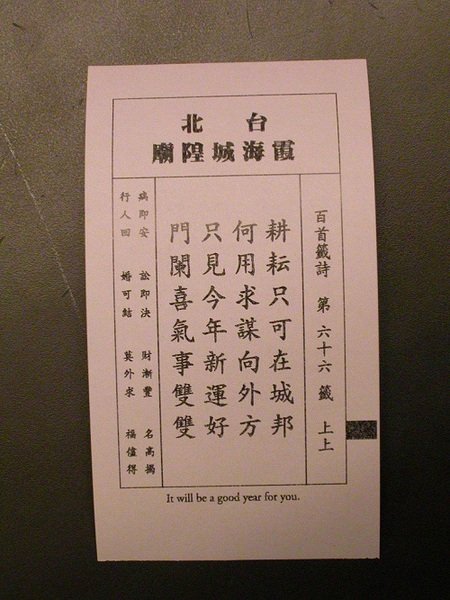 台北
霞海城隍廟
百首籤詩 第 六十六 籤 上上
耕耘只可在城邦
何用求謀向外方
只見今年新運好
門闌喜氣事雙雙
病即安 訟即決 財漸豐 名高揭
行人回 婚可結 莫外求 福儘得
It will be a good year for you.